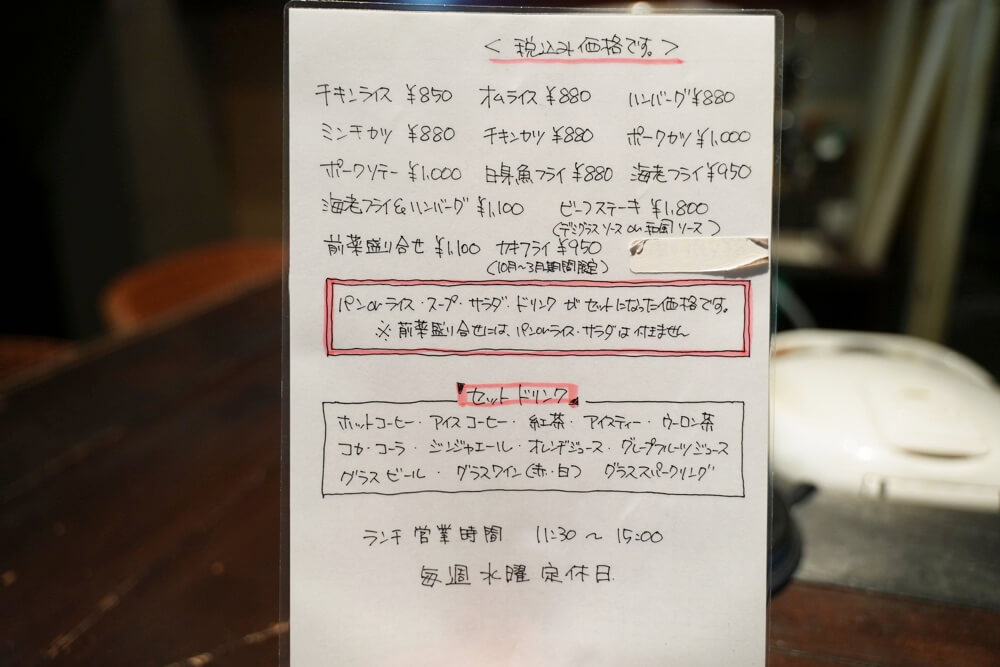 ＜税込み価格です。＞
チキンライス ¥850 オムライス ¥880 ハンバーグ ¥880
ミンチカツ ¥880 チキンカツ ¥880 ポークカツ ¥1,000
ポークソテー ¥1,000 白身魚フライ ¥880 海老フライ ¥950
海老フライ&ハンバーグ ¥1,100 ビーフステーキ ¥1,800
(デミグラスソース or 和風ソース)
前菜盛り合せ ¥1,100 カキフライ ¥950
(10月〜3月期間限定)
パンorライス・スープ・サラダ・ドリンク がセットになった価格です。
※前菜盛り合せには、パンorライス・サラダは付きません
セットドリンク
ホットコーヒー・アイスコーヒー・紅茶・アイスティー・ウーロン茶
コカ・コーラ・ジンジャエール・オレンヂジュース・グレープフルーツジュース
グラスビール・グラスワイン(赤・白) グラススパークリング
ランチ営業時間 11:30〜15:00
毎週水曜定休日